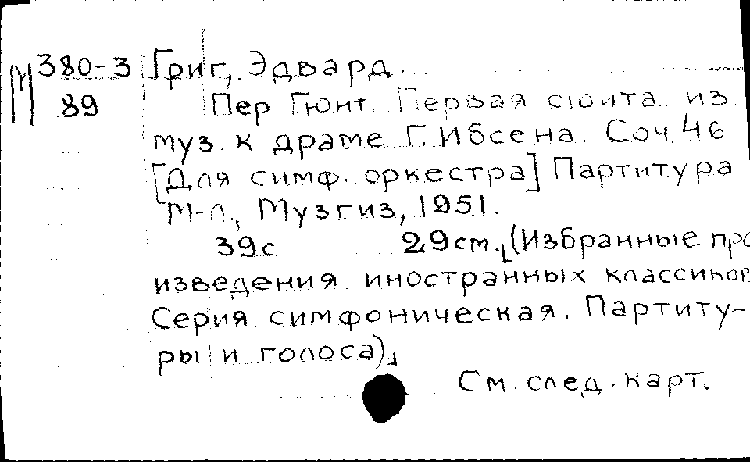 М 380-3 Григ, Эдвард
89 Пер Гюнт. Первая сюита из
муз. к драме Г. Ибсена. Соч. 46
[Для симф. оркестра] Партитура
М-Л., Музгиз, 1951.
39с 29см. (Избранные про
изведения иностранных классиков
Серия симфоническая. Партиту-
ры и голоса)
См. след. карт.